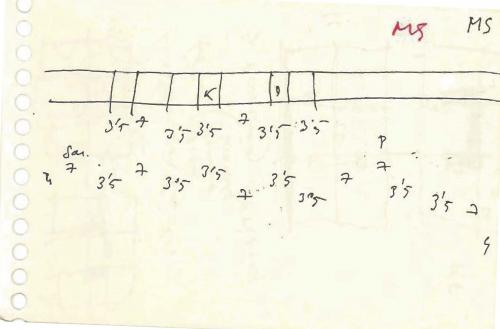 MS MS
K
3'5 7 3'5 3'5 7 3'5 3'5
P
7 3'5 7 3'5 3'5 7 3'5 3'5 7 7 3'5 3'5 7